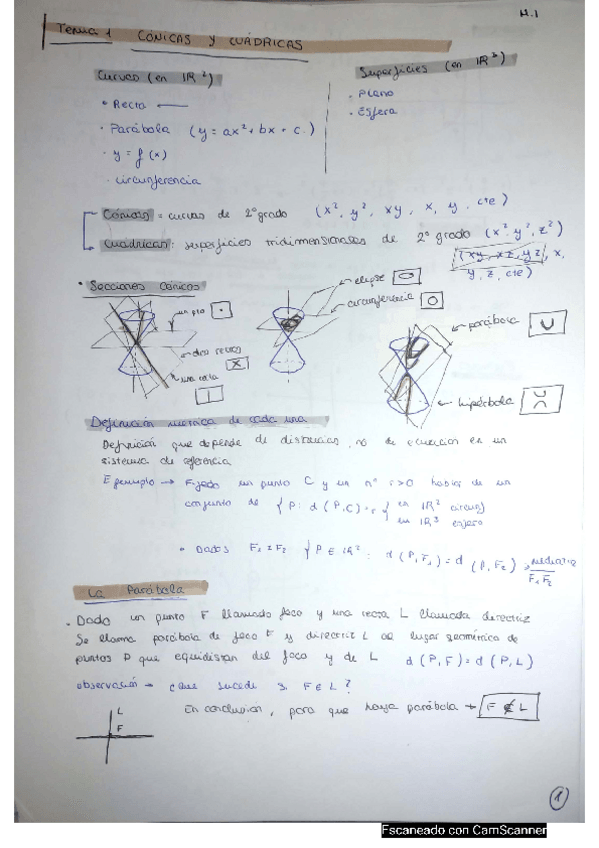 H.1
Tema 1 CÓNICAS Y CUÁDRICAS
Curvas (en IR²)
Superficies (en IR³)
• Recta
• Plano
• Esfera
• Parábola (y = ax² + bx + c.)
• y = f(x)
• circunferencia
Cónicas = curvas de 2º grado (x², y², xy, x, y, cte)
Cuadricas: superficies tridimensionales de 2º grado (x², y², z²)
(xy, xz, yz), x,
y, z, cte)
• Secciones Cónicas
un pto
dos rectas
una recta
elipse
circunferencia
parábola
hipérbola
Definición metrica de cada una
Definición que depende de distancias, no de ecuacion en un
sistema de referencia
Ejemplo → Fijado un punto C y un nº r>0 hablas de un
conjunto de { P: d(P,C)=r { en IR² circunf
en IR³ esfera
• Dados F₁ ≠ F₂ { P ∈ IR² : d(P,F₁) = d(P,F₂) mediatriz
F₁F₂
La Parábola
• Dado un punto F llamado foco y una recta L llamada directriz
Se llama parábola de foco F y directriz L al lugar geométrico de
puntos P que equidistan del foco y de L d(P,F) = d(P,L)
observación → ¿que sucede si F ∈ L?
L
F
En conclusion, para que haya parábola → F ∉ L
1
Escaneado con CamScanner